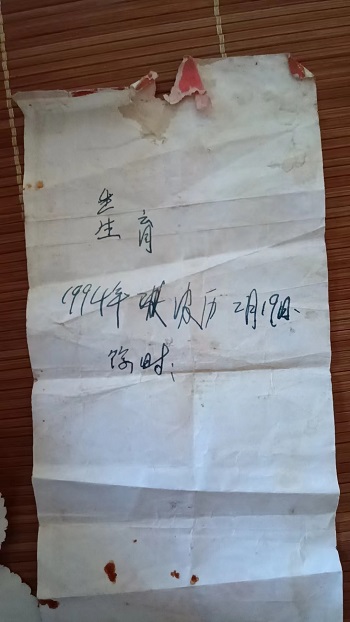 出生 育
1994年 农历 二月19日.
时: